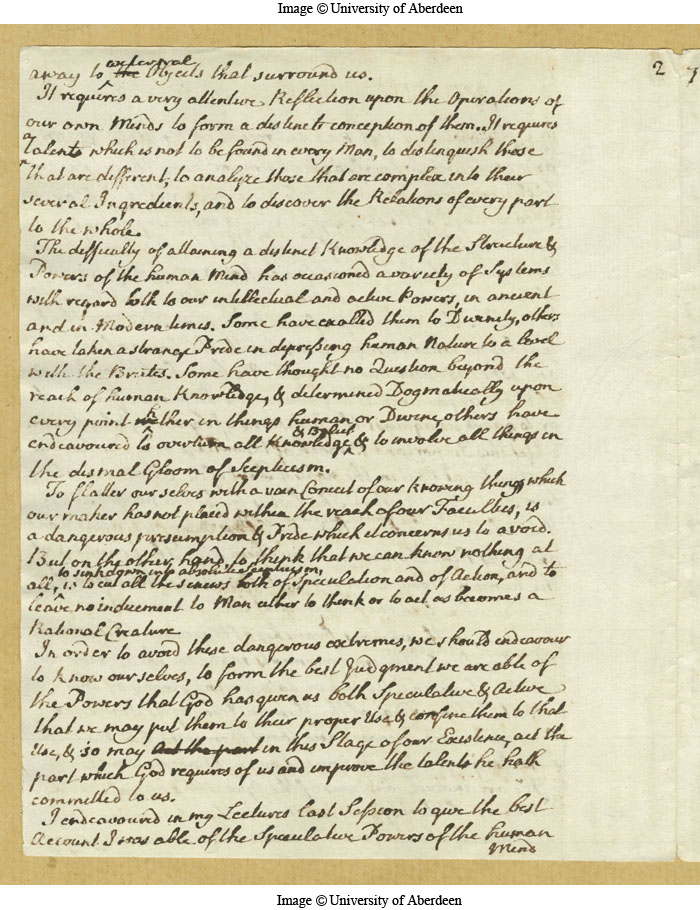 Image © University of Aberdeen
2
7
external
away to the Objects that surround us.
It requires a very attentive Reflection upon the Operations of
our own Minds to form a distinct conception of them. It requires
a
talents which is not to be found in every Man, to distinguish those
that are different, to analyze those that are complex into their
several Ingredients, and to discover the Relations of every part
to the whole.
The difficulty of attaining a distinct Knowledge of the Structure &
Powers of the human Mind has occasioned a variety of Systems
with regard both to our intellectual and active Powers, in ancient
and in Modern times. Some have exalted them to Divinity, others
have taken a strange Pride in depressing human Nature to a level
with the Brutes. Some have thought no Question beyond the
reach of human Knowledge, & determined Dogmatically upon
every point whether in things human or Divine, others have
& Belief
endeavoured to overturn all Knowledge & to involve all things in
the dismal Gloom of Scepticism.
To flatter our selves with a vain Conceit of our knowing things which
our maker has not placed within the reach of our Faculties, is
a dangerous presumption & Pride which it concerns us to avoid.
But on the other hand to think that we can know nothing at
to sink down into absolute Scepticism,
all, is to cut all the sinews both of Speculation and of Action, and to
leave no inducement to Man either to think or to act as becomes a
Rational Creature
In order to avoid these dangerous extremes, we should endeavour
to know our selves, to form the best Judgment we are able of
the Powers that God has given us both Speculative & Active
that we may put them to their proper Use, & confine them to that
Use, & so may act the part in this Stage of our Existence, act the
part which God requires of us and improve the talents he hath
committed to us.
I endeavoured in my Lectures last Session to give the best
Account I was able of the Speculative Powers of the human
Mind
Image © University of Aberdeen